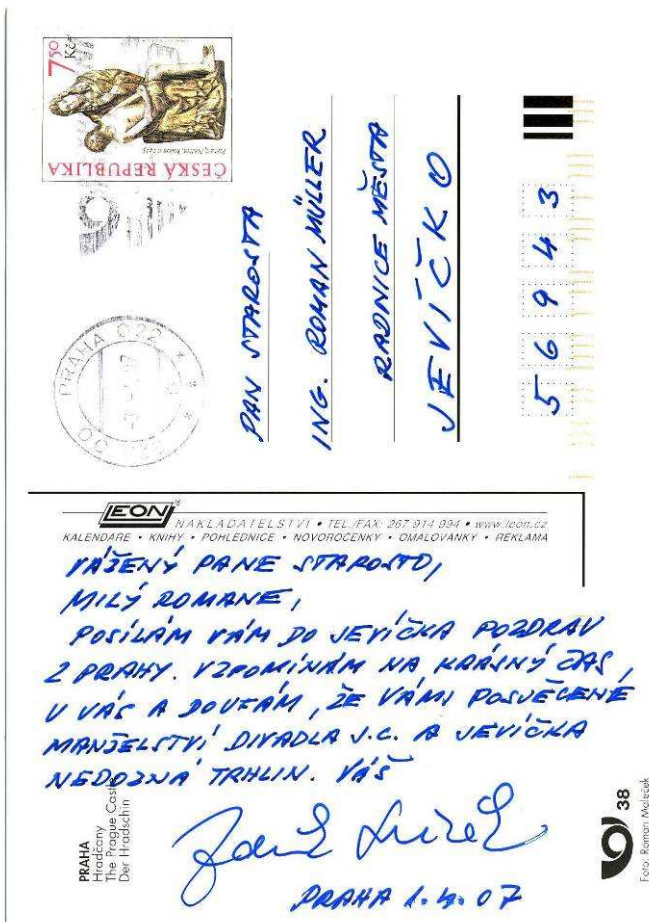 7,50
Kč
ČESKÁ REPUBLIKA
PRAHA 022
PAN STAROSTA
ING. ROMAN MÜLLER
RADNICE MĚSTA
JEVÍČKO
56943
LEON
NAKLADATELSTVÍ • TEL./FAX: 267 914 994 • www.leon.cz
KALENDÁŘE • KNIHY • POHLEDNICE • NOVOROČENKY • OMALOVÁNKY • REKLAMA
VÁŽENÝ PANE STAROSTO,
MILÝ ROMANE,
POSÍLÁM VÁM DO JEVÍČKA POZDRAV
Z PRAHY. VZPOMÍNÁM NA KRÁSNÝ ČAS
U VÁS A DOUFÁM, ŽE VÁMI POSVĚCENÉ
MANŽELSTVÍ DIVADLA J.C. A JEVÍČKA
NEDOZNÁ TRHLIN. VÁŠ
PRAHA 1.4.07
PRAHA
Hradčany
The Prague Castle
Der Hradschin
38
Foto: Roman Maleček